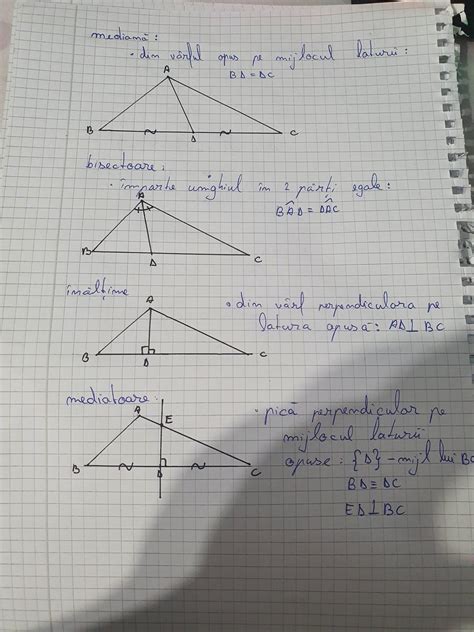 mediamă:
• din vârful opus pe mijlocul laturii:
BD = DC
A
B
D
C
bisectoare:
• împarte unghiul în 2 părți egale:
BÂD = DÂC
A
B
D
C
înălțime
• din vârf perpendiculara pe
latura opusă: AD⊥BC
A
B
D
C
mediatoare:
• pică perpendicular pe
mijlocul laturii
opuse: {D} - mijl lui BC
BD ≡ DC
ED⊥BC
A
E
B
D
C